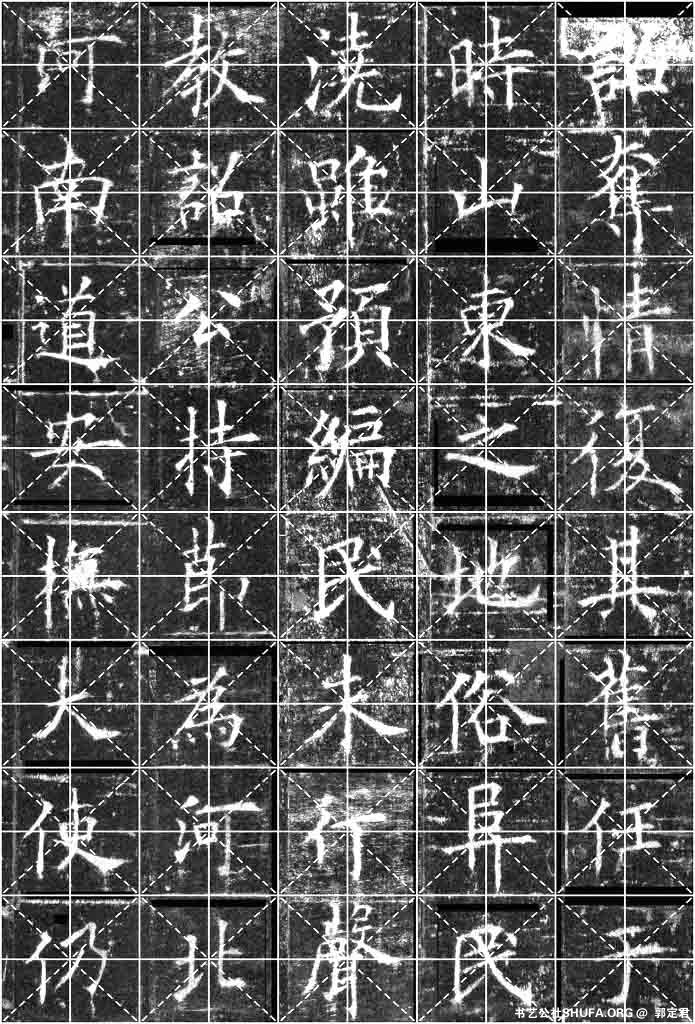 詔奪情復其舊任于
時山東之地俗阜民
澆雖預編民未行聲
教詔公持節為河北
河南道安撫大使仍
书艺公社SHUFA.ORG @ 郭定君